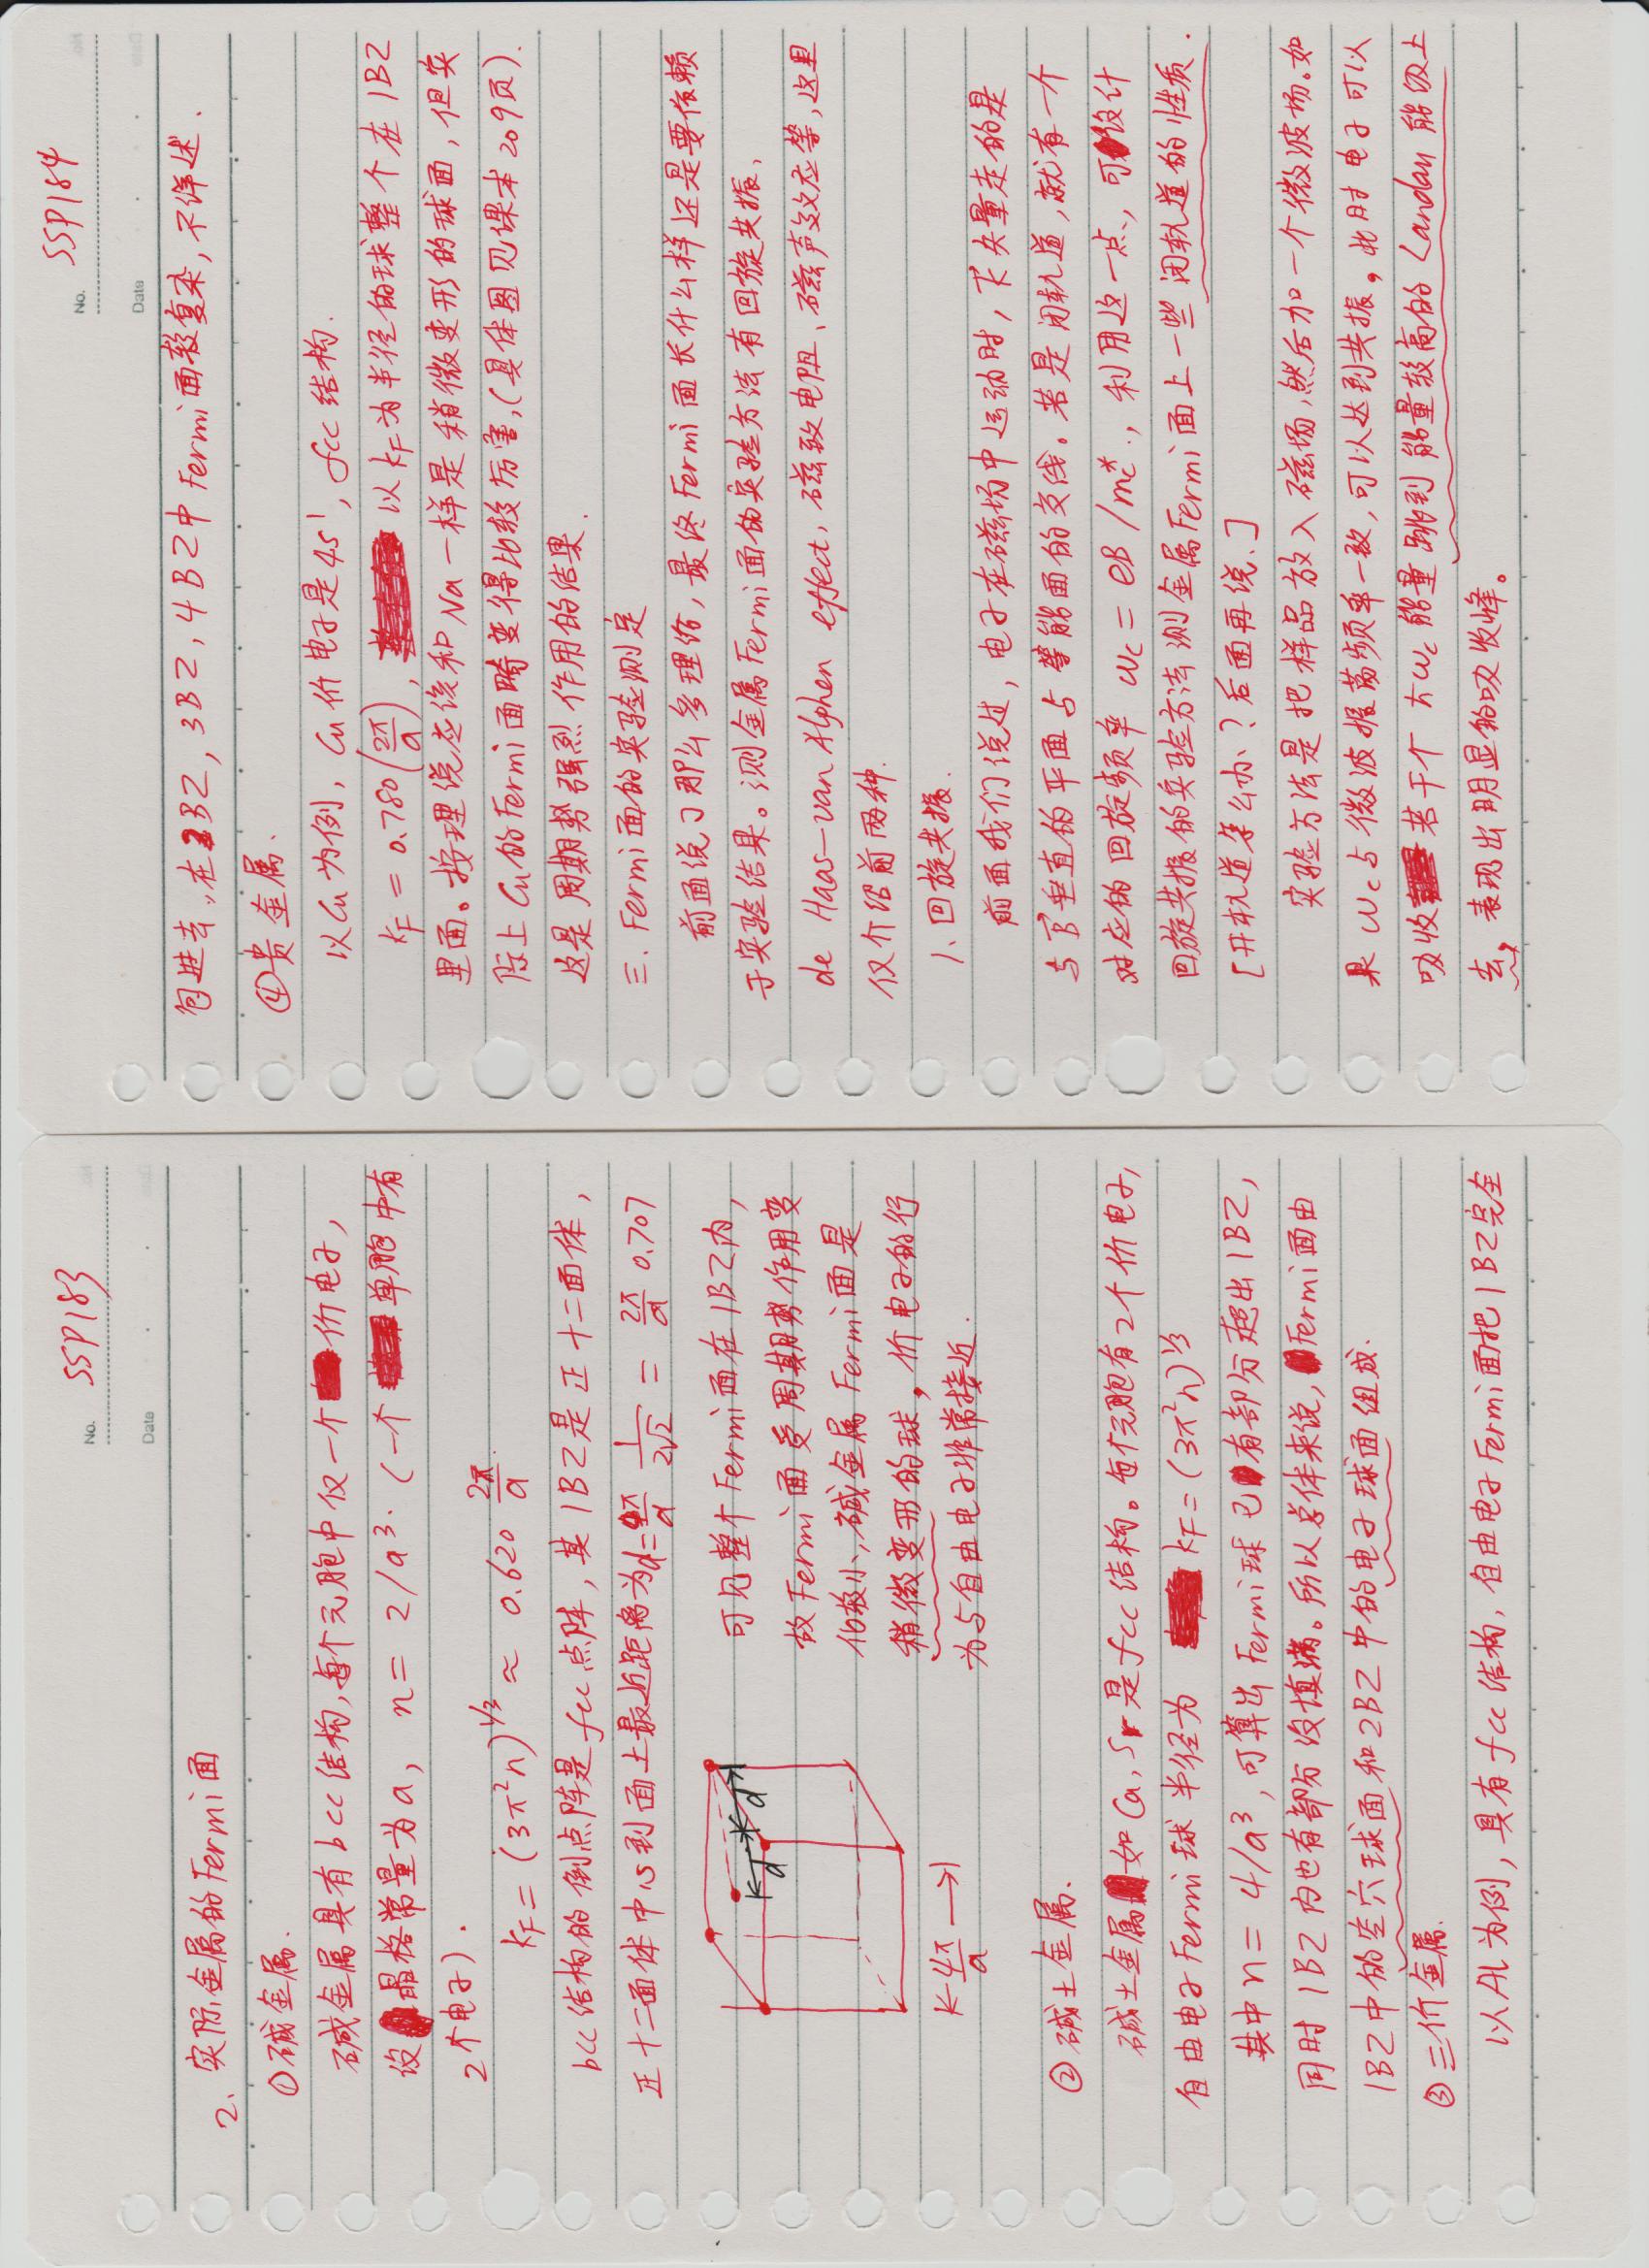 No. SSP183
Date
2. 实际金属的Fermi面
①碱金属.
碱金属具有bcc结构,每个元胞中仅一个价电子,
设晶格常量为a, n = 2/a³. (一个单胞中有
2个电子).
kF = (3π²n)^1/3 ≈ 0.620 2π/a.
bcc结构的倒点阵是fcc点阵, 其1BZ是正十二面体,
正十二面体中心到面上最近距离为d=4π/a 1/2√2 = 2π/a 0.707
d d
可见整个Fermi面在1BZ内,
故Fermi面受周期势作用变
化较小,碱金属Fermi面是
稍微变形的球。价电子的行
为与自由电子非常接近.
4π/a
②碱土金属.
碱土金属如Ca, Sr是fcc结构。每个元胞有2个价电子,
自由电子Fermi球半径为 kF=(3π²n)^1/3
其中n = 4/a³, 可算出Fermi球已有部分超出1BZ,
同时1BZ内也有部分没填满。所以总体来说,Fermi面由
1BZ中的空穴球面和2BZ中的电子球面组成.
③三价金属.
以Al为例, 具有fcc结构, 自由电子Fermi面把1BZ完全
No. SSP184
Date
包进去,在2BZ, 3BZ, 4BZ中Fermi面较复杂, 不详述.
④贵金属.
以Cu为例, Cu价电子是4s¹, fcc结构.
kF = 0.780(2π/a), 以kF为半径的球整个在1BZ
里面。按理说应该和Na一样是稍微变形的球面, 但实
际上Cu的Fermi面畸变得比较厉害,(具体图见课本209页).
这是周期势强烈作用的结果.
三. Fermi面的实验测定
前面说了那么多理论, 最终Fermi面长什么样还是要依赖
于实验结果。测金属Fermi面的实验方法有回旋共振、
de Haas—van Alphen effect、磁致电阻、磁声效应等, 这里
仅介绍前两种.
1、回旋共振.
前面我们说过, 电子在磁场中运动时, k⃗矢量走的是
与B⃗垂直的平面与等能面的交线。若是闭轨道, 就有一个
对应的回旋频率 ωc = eB/mc*., 利用这一点, 可设计
回旋共振的实验方法测金属Fermi面上一些闭轨道的性质.
[开轨道怎么办? 后面再说.]
实验方法是把样品放入磁场,然后加一个微波场。如
果ωc与微波振荡频率一致, 可以达到共振。此时电子可以
吸收若干个ħωc能量跳到能量较高的Landau能级上
去。表现出明显的吸收峰。